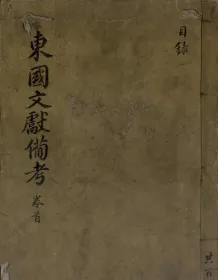 目錄
東國文獻備考 卷首
共